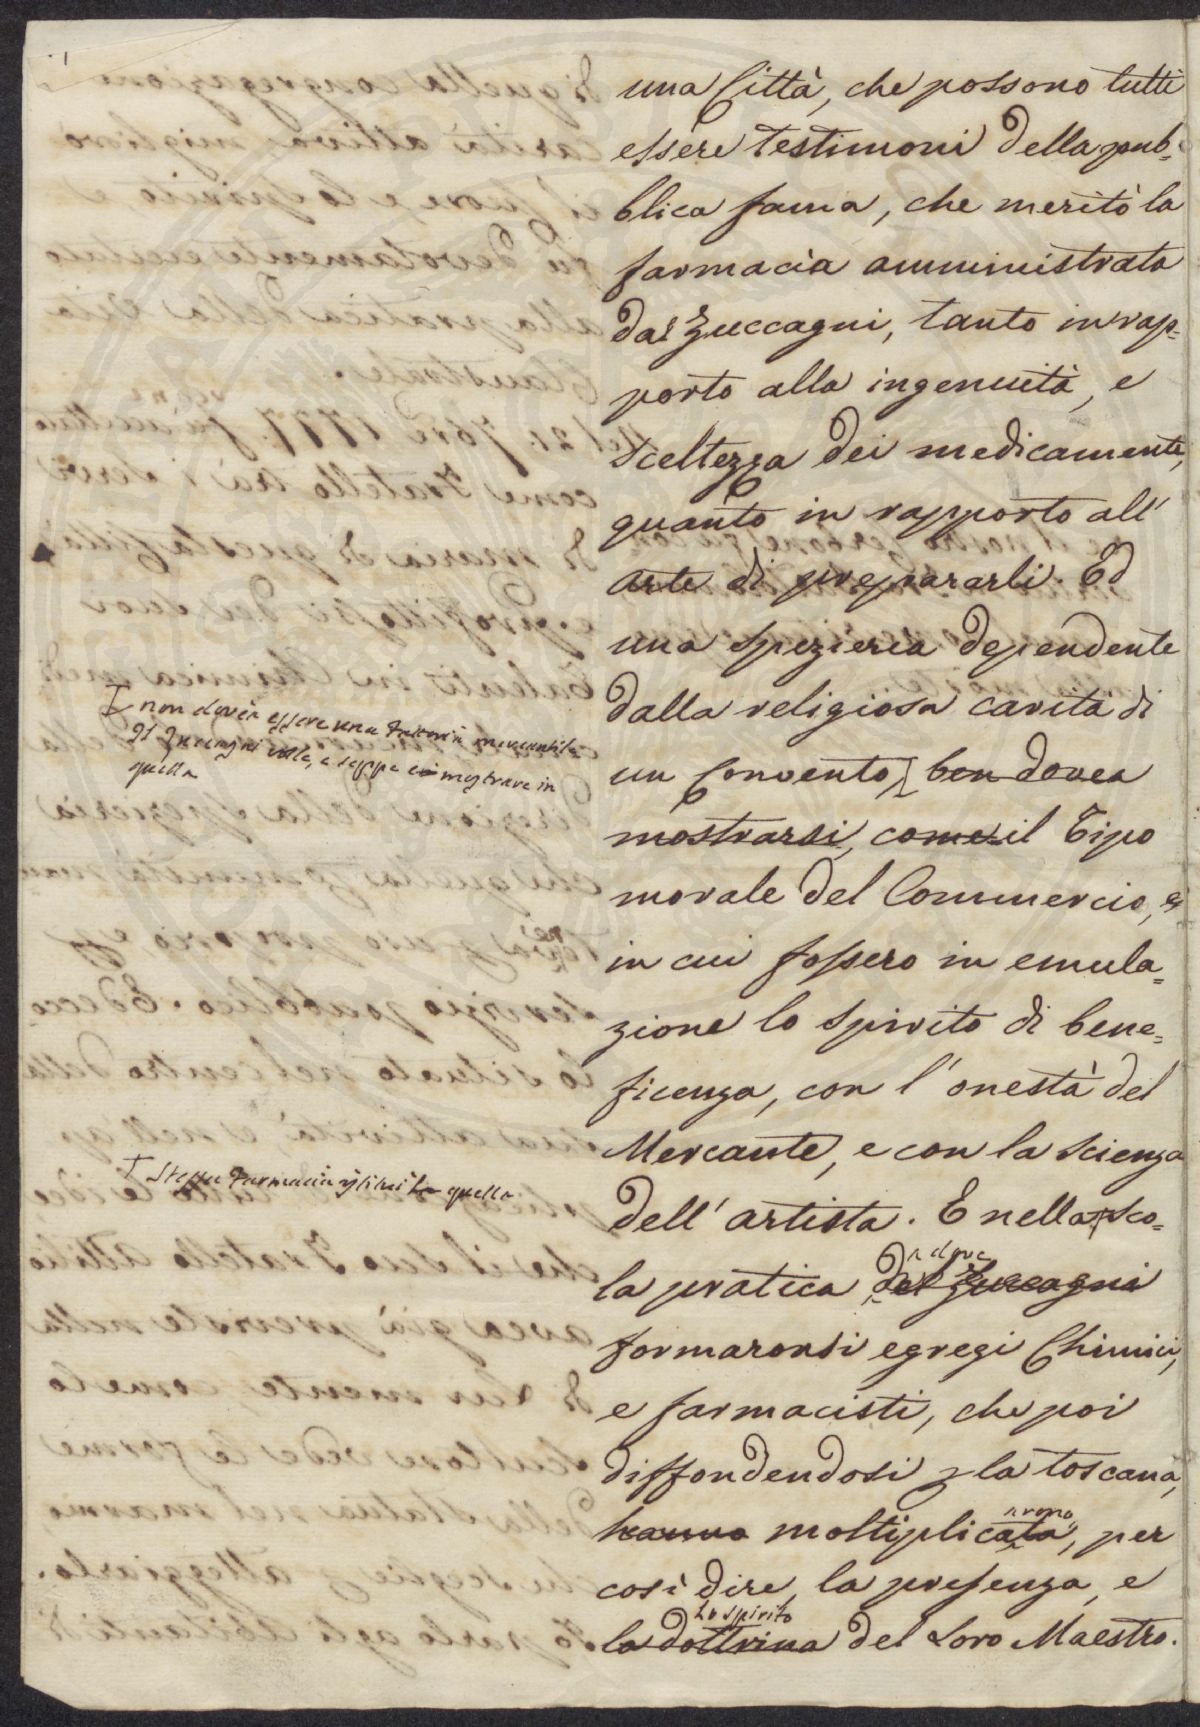 una Città, che possono tutti
essere testimoni della pub=
blica fama, che meritò la
farmacia amministrata
dal Zuccagni, tanto in rap=
porto alla ingenuità, e
sceltezza dei medicamenti,
quanto in rapporto all'
arte di prepararli. Ed
una spezieria dependente
dalla religiosa carità di
non dovea essere una Trattoria mercantile
Il Zuccagni volle, e seppe mostrare in
quella
un Convento, ben dovea
mostrarsi, come il Tipo
morale del Commercio, e
in cui fossero in emula=
zione lo spirito di bene=
ficenza, con l'onestà del
Mercante, e con la scienza
Stessa Farmacia istituì quella
dell'artista. E nella sco=
dove
la pratica del Zuccagni
formaronsi egregi Chimici,
e farmacisti, che poi
diffondendosi p la toscana,
rono
hanno moltiplicata, per
così dire, la presenza, e
lo spirito
la dottrina del Loro Maestro.